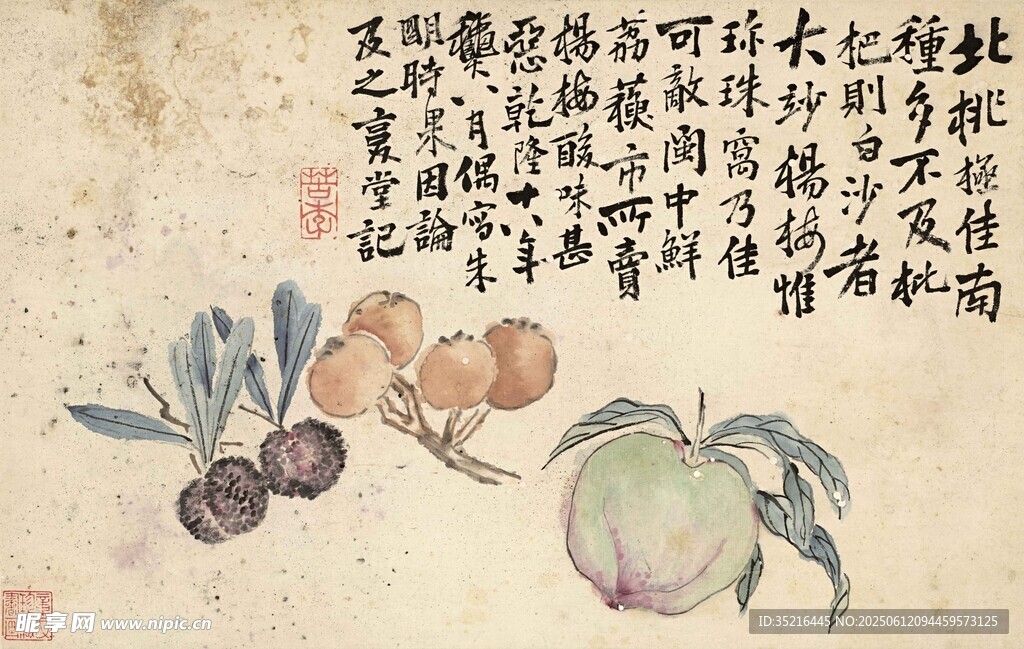 北桃極佳南
種多不及枇
杷則白沙者
大妙楊梅惟
珎珠窩乃佳
可敵閩中鮮
荔市所賣
楊梅酸味甚
惡乾隆十八年
八月偶朱
明時果因論
及之复堂記
苦李
昵享网 www.nipic.cn
ID:35216445 NO:20250612094459573125